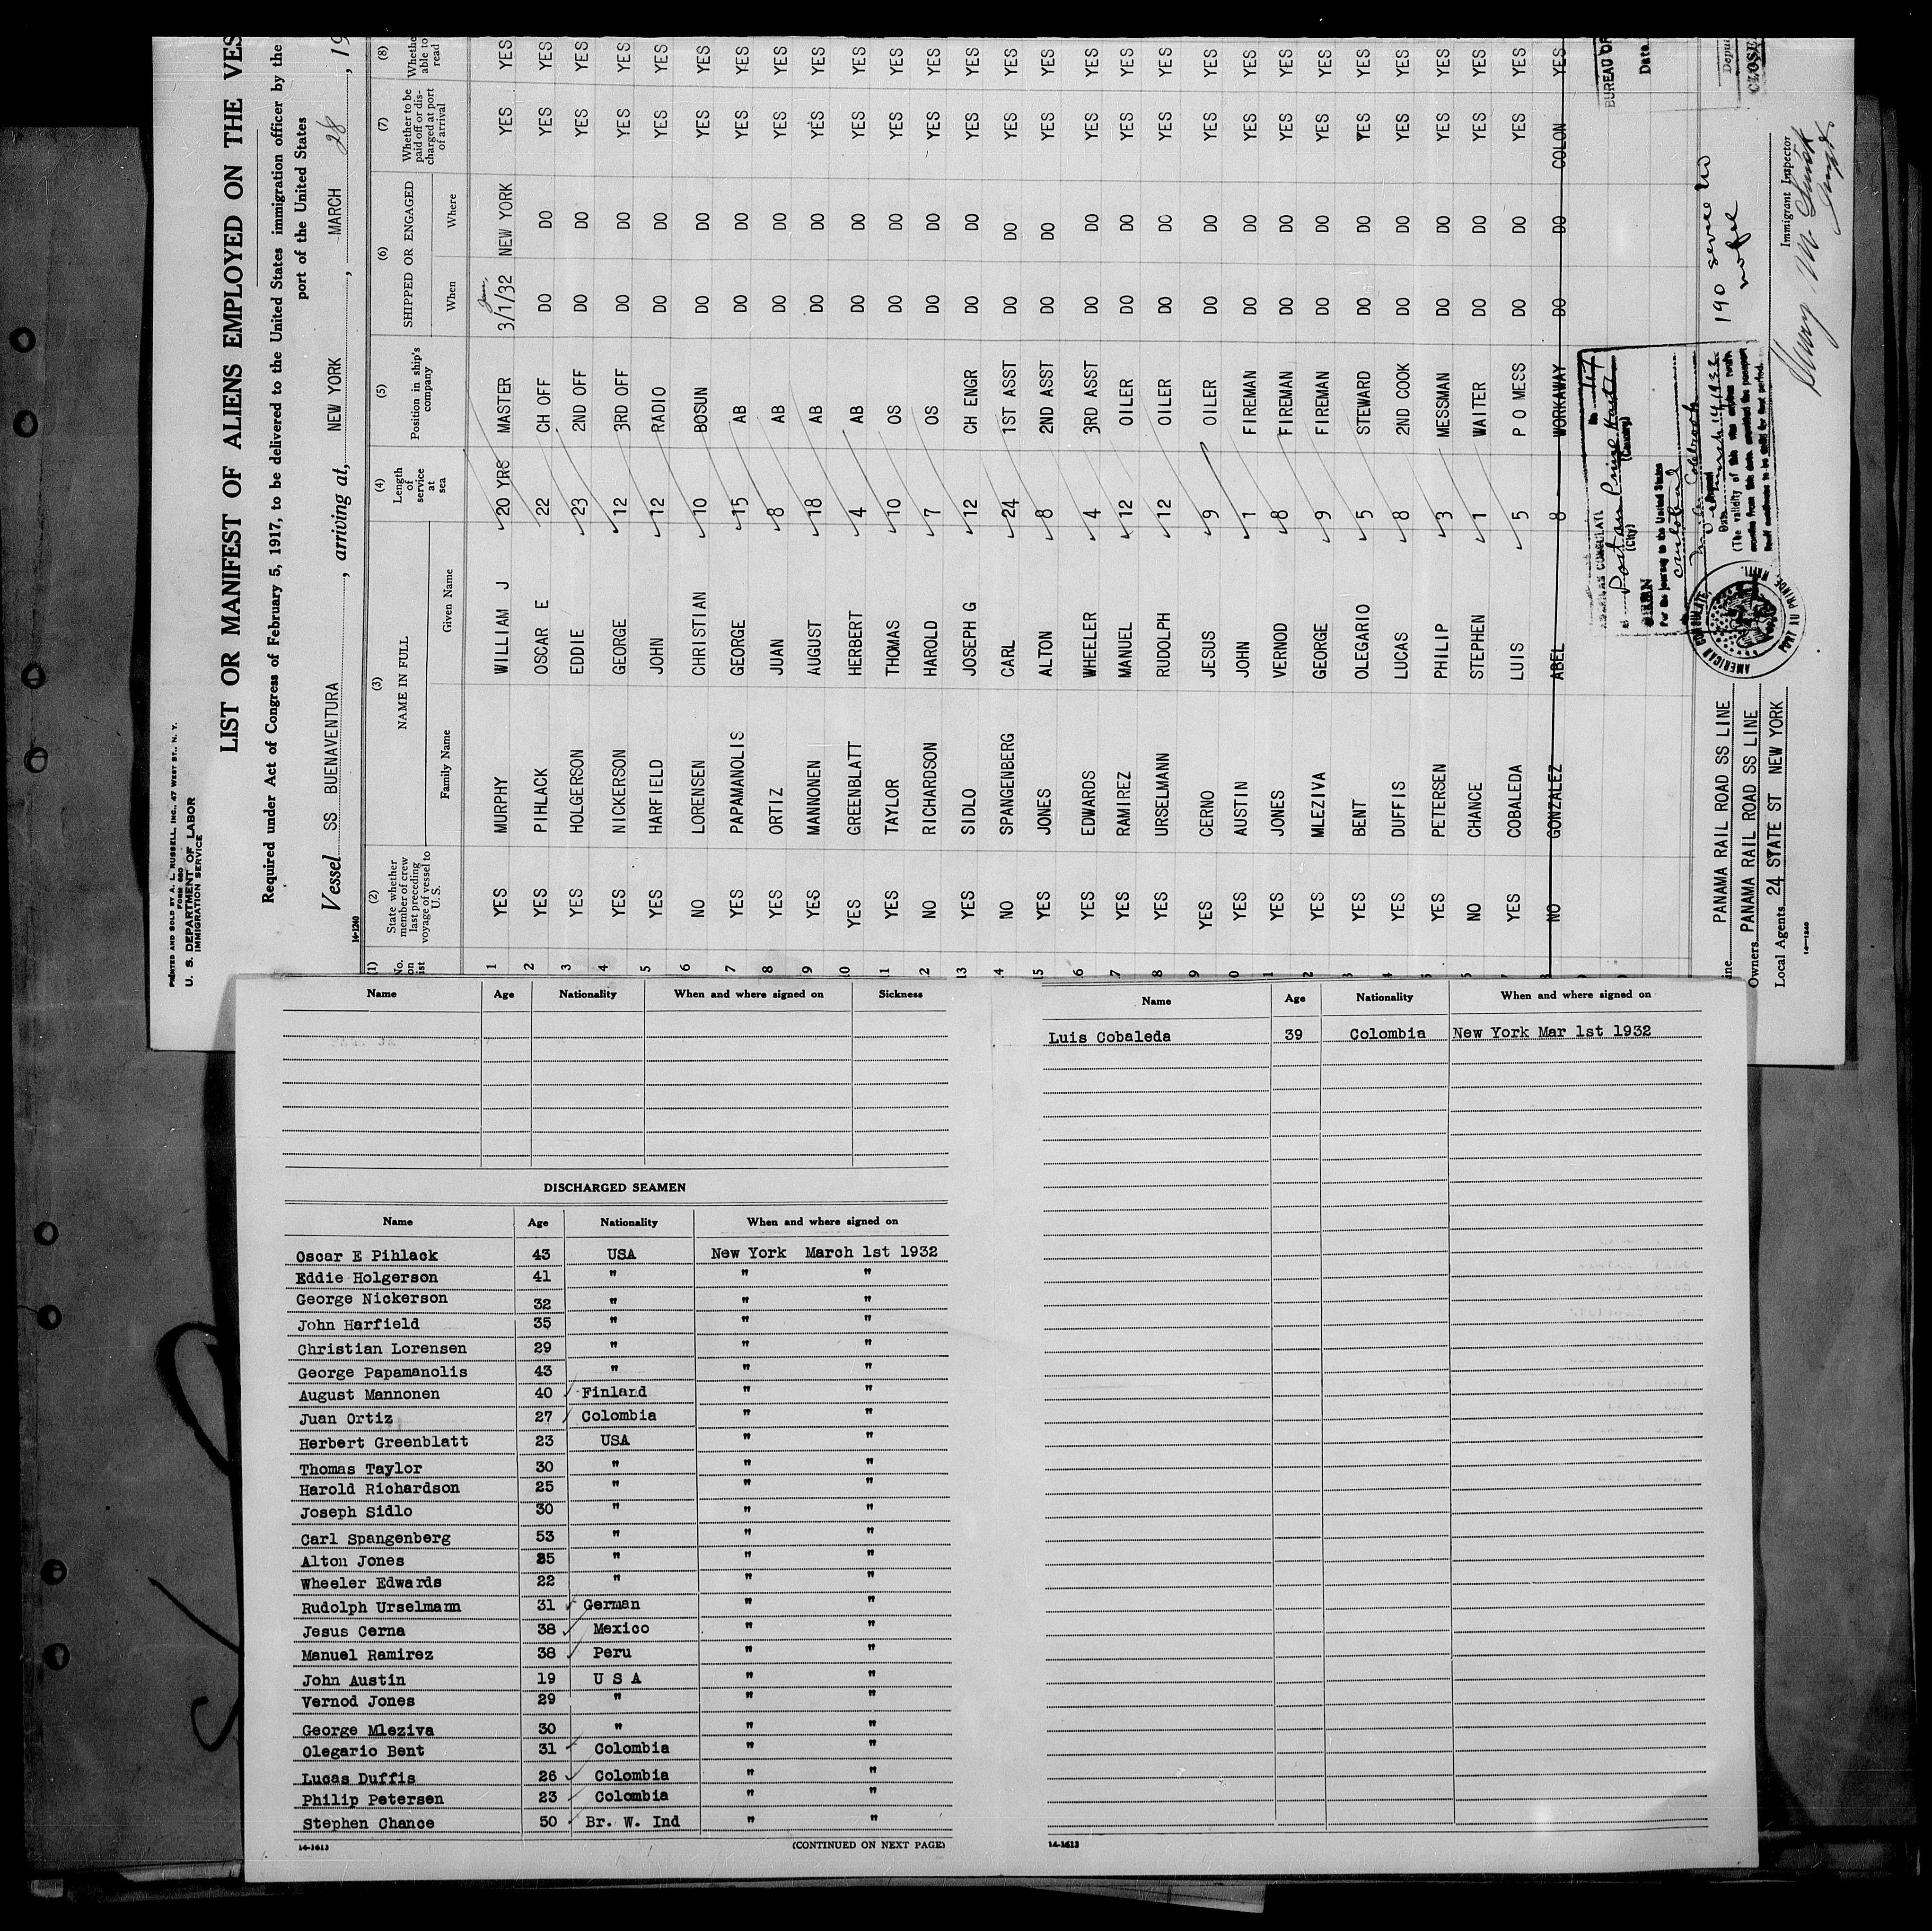 PRINTED AND SOLD BY A. L. RUSSELL, INC., 47 WEST ST., N. Y.
FORM 680
U. S. DEPARTMENT OF LABOR
IMMIGRATION SERVICE
LIST OR MANIFEST OF ALIENS EMPLOYED ON THE VES
Required under Act of Congress of February 5, 1917, to be delivered to the United States immigration officer by the
port of the United States
Vessel SS BUENAVENTURA, arriving at, NEW YORK, MARCH 28, 19
14-1240
(1) (2) (3) (4) (5) (6) (7) (8)
No. on list State whether member of crew last preceding voyage of vessel to U.S. NAME IN FULL Length of service at sea Position in ship's company SHIPPED OR ENGAGED Whether to be paid off or discharged at port of arrival Whethe able to read
Family Name Given Name When Where
1 YES MURPHY WILLIAM J 20 YRS MASTER Jan. 3/1/32 NEW YORK YES YES
2 YES PIHLACK OSCAR E 22 CH OFF DO DO YES YES
3 YES HOLGERSON EDDIE 23 2ND OFF DO DO YES YES
4 YES NICKERSON GEORGE 12 3RD OFF DO DO YES YES
5 YES HARFIELD JOHN 12 RADIO DO DO YES YES
6 NO LORENSEN CHRISTIAN 10 BOSUN DO DO YES YES
7 YES PAPAMANOLIS GEORGE 15 AB DO DO YES YES
8 YES ORTIZ JUAN 8 AB DO DO YES YES
9 YES MANNONEN AUGUST 18 AB DO DO YES YES
10 YES GREENBLATT HERBERT 4 AB DO DO YES YES
11 YES TAYLOR THOMAS 10 OS DO DO YES YES
12 NO RICHARDSON HAROLD 7 OS DO DO YES YES
13 YES SIDLO JOSEPH G 12 CH ENGR DO DO YES YES
14 NO SPANGENBERG CARL 24 1ST ASST DO DO YES YES
15 YES JONES ALTON 8 2ND ASST DO DO YES YES
6 YES EDWARDS WHEELER 4 3RD ASST DO DO YES YES
7 YES RAMIREZ MANUEL 12 OILER DO DO YES YES
8 YES URSELMANN RUDOLPH 12 OILER DO DO YES YES
9 YES CERNO JESUS 9 OILER DO DO YES YES
0 YES AUSTIN JOHN 1 FIREMAN DO DO YES YES
1 YES JONES VERNOD 8 FIREMAN DO DO YES YES
2 YES MLEZIVA GEORGE 9 FIREMAN DO DO YES YES
3 YES BENT OLEGARIO 5 STEWARD DO DO YES YES
4 YES DUFFIS LUCAS 8 2ND COOK DO DO YES YES
5 YES PETERSEN PHILIP 3 MESSMAN DO DO YES YES
6 NO CHANCE STEPHEN 1 WAITER DO DO YES YES
7 YES COBALEDA LUIS 5 P O MESS DO DO YES YES
8 NO GONZALEZ ABEL 8 WORKAWAY DO DO COLON YES
AMERICAN CONSULATE No 117
Port au Prince Haiti
(City) (Country)
SEEN
For the journey to the United States
Date March 14 1932
(The validity of this visa expires twelve months from this date, provided the passport itself continues to be valid for that period.
AMERICAN CONSULATE, PORT AU PRINCE HAITI
190 service no
no fee
BUREAU OF
Date
CLOSE
Line PANAMA RAIL ROAD SS LINE
Owners PANAMA RAIL ROAD SS LINE
Local Agents 24 STATE ST NEW YORK
Immigrant Inspector
14-1240
Name Age Nationality When and where signed on Sickness
DISCHARGED SEAMEN
Name Age Nationality When and where signed on
Oscar E Pihlack 43 USA New York March 1st 1932
Eddie Holgerson 41 " " "
George Nickerson 32 " " "
John Harfield 35 " " "
Christian Lorensen 29 " " "
George Papamanolis 43 " " "
August Mannonen 40 Finland " "
Juan Ortiz 27 Colombia " "
Herbert Greenblatt 23 USA " "
Thomas Taylor 30 " " "
Harold Richardson 25 " " "
Joseph Sidlo 30 " " "
Carl Spangenberg 53 " " "
Alton Jones 35 " " "
Wheeler Edwards 22 " " "
Rudolph Urselmann 31 German " "
Jesus Cerna 38 Mexico " "
Manuel Ramirez 38 Peru " "
John Austin 19 U S A " "
Vernod Jones 29 " " "
George Mleziva 30 " " "
Olegario Bent 31 Colombia " "
Lucas Duffis 26 Colombia " "
Philip Petersen 23 Colombia " "
Stephen Chance 50 Br. W. Ind " "
14-1613
(CONTINUED ON NEXT PAGE)
Name Age Nationality When and where signed on
Luis Cobaleda 39 Colombia New York Mar 1st 1932
14-1613